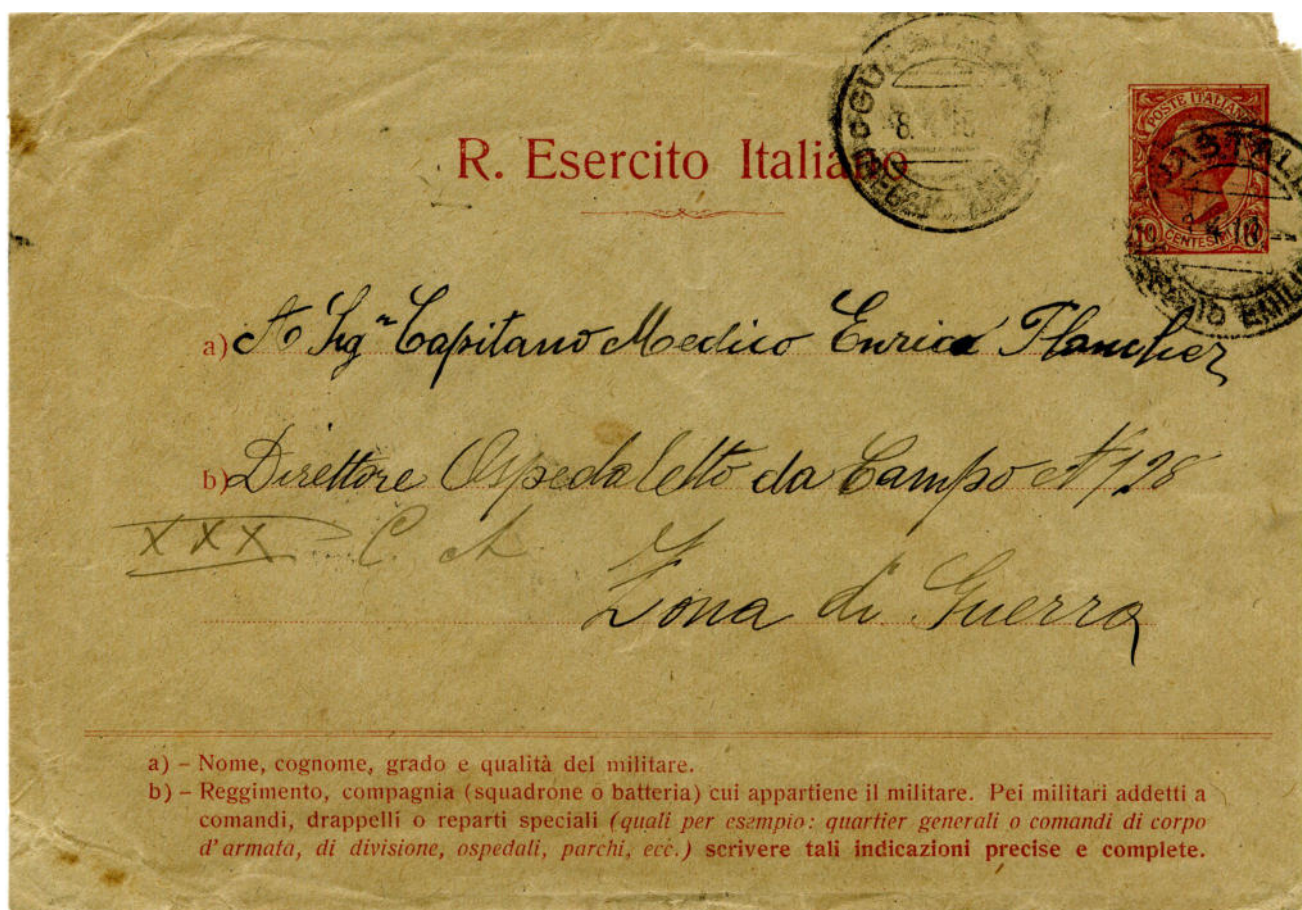 R. Esercito Italiano
POSTE ITALIANE
10 CENTESIMI 10
REGGIO EMILIA
a) A Sigr Capitano Medico Enrico Plancher
b) Direttore Ospedaletto da Campo N 128
XXX C. A
Zona di Guerra
a) – Nome, cognome, grado e qualità del militare.
b) – Reggimento, compagnia (squadrone o batteria) cui appartiene il militare. Pei militari addetti a
comandi, drappelli o reparti speciali (quali per esempio: quartier generali o comandi di corpo
d'armata, di divisione, ospedali, parchi, ecc.) scrivere tali indicazioni precise e complete.